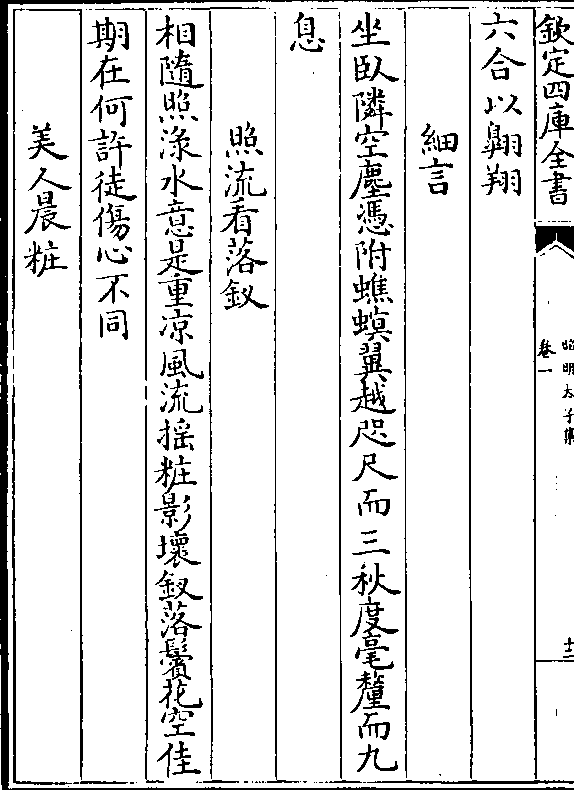 欽定四庫全書
昭明太子集
卷一
十二
六合以翺翔
細言
坐臥隣空塵憑附蟭螟翼越咫尺而三秋度毫釐而九
息
照流看落釵
相隨照渌水意是重凉風流摇粧影壞釵落鬢花空佳
期在何許徒傷心不同
美人晨粧